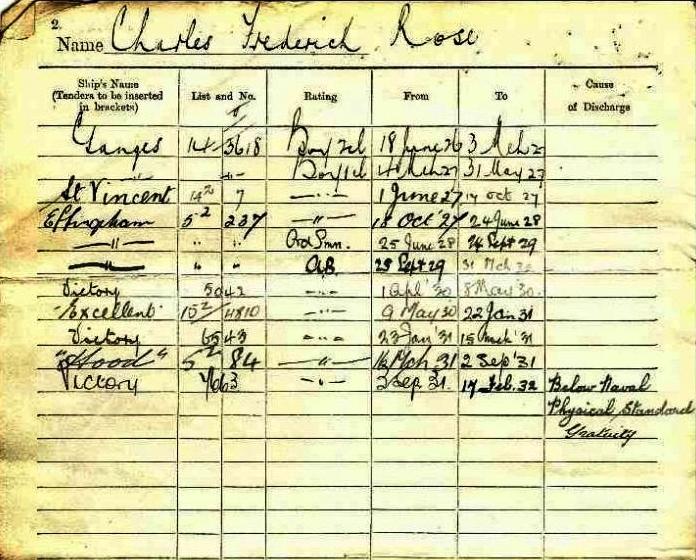 2.
Name Charles Frederick Rose
Ship's Name (Tenders to be inserted in brackets) List and No. Rating From To Cause of Discharge
Ganges 14 3618 Boy 2cl 18 June 26 3 Mch 27
" " Boy 1cl 4 Mch 27 31 May 27
St Vincent 14² 7 " 1 June 27 17 Oct 27
Effingham 5² 237 " 18 Oct 27 24 June 28
" " " Ord Smn. 25 June 28 24 Sept 29
" " " AB. 25 Sept 29 31 Mch 30
Victory 5042 " 1 Apl '30 8 May 30.
Excellent 15² 4810 " 9 May 30 22 Jan 31
Victory 6543 " 23 Jan '31 15 Mch '31
"Hood" 5² 84 " 16 Mch '31 2 Sep '31
Victory 63 " Sep 31. 17 Feb. 32 Below Naval
Physical Standard
Gratuity